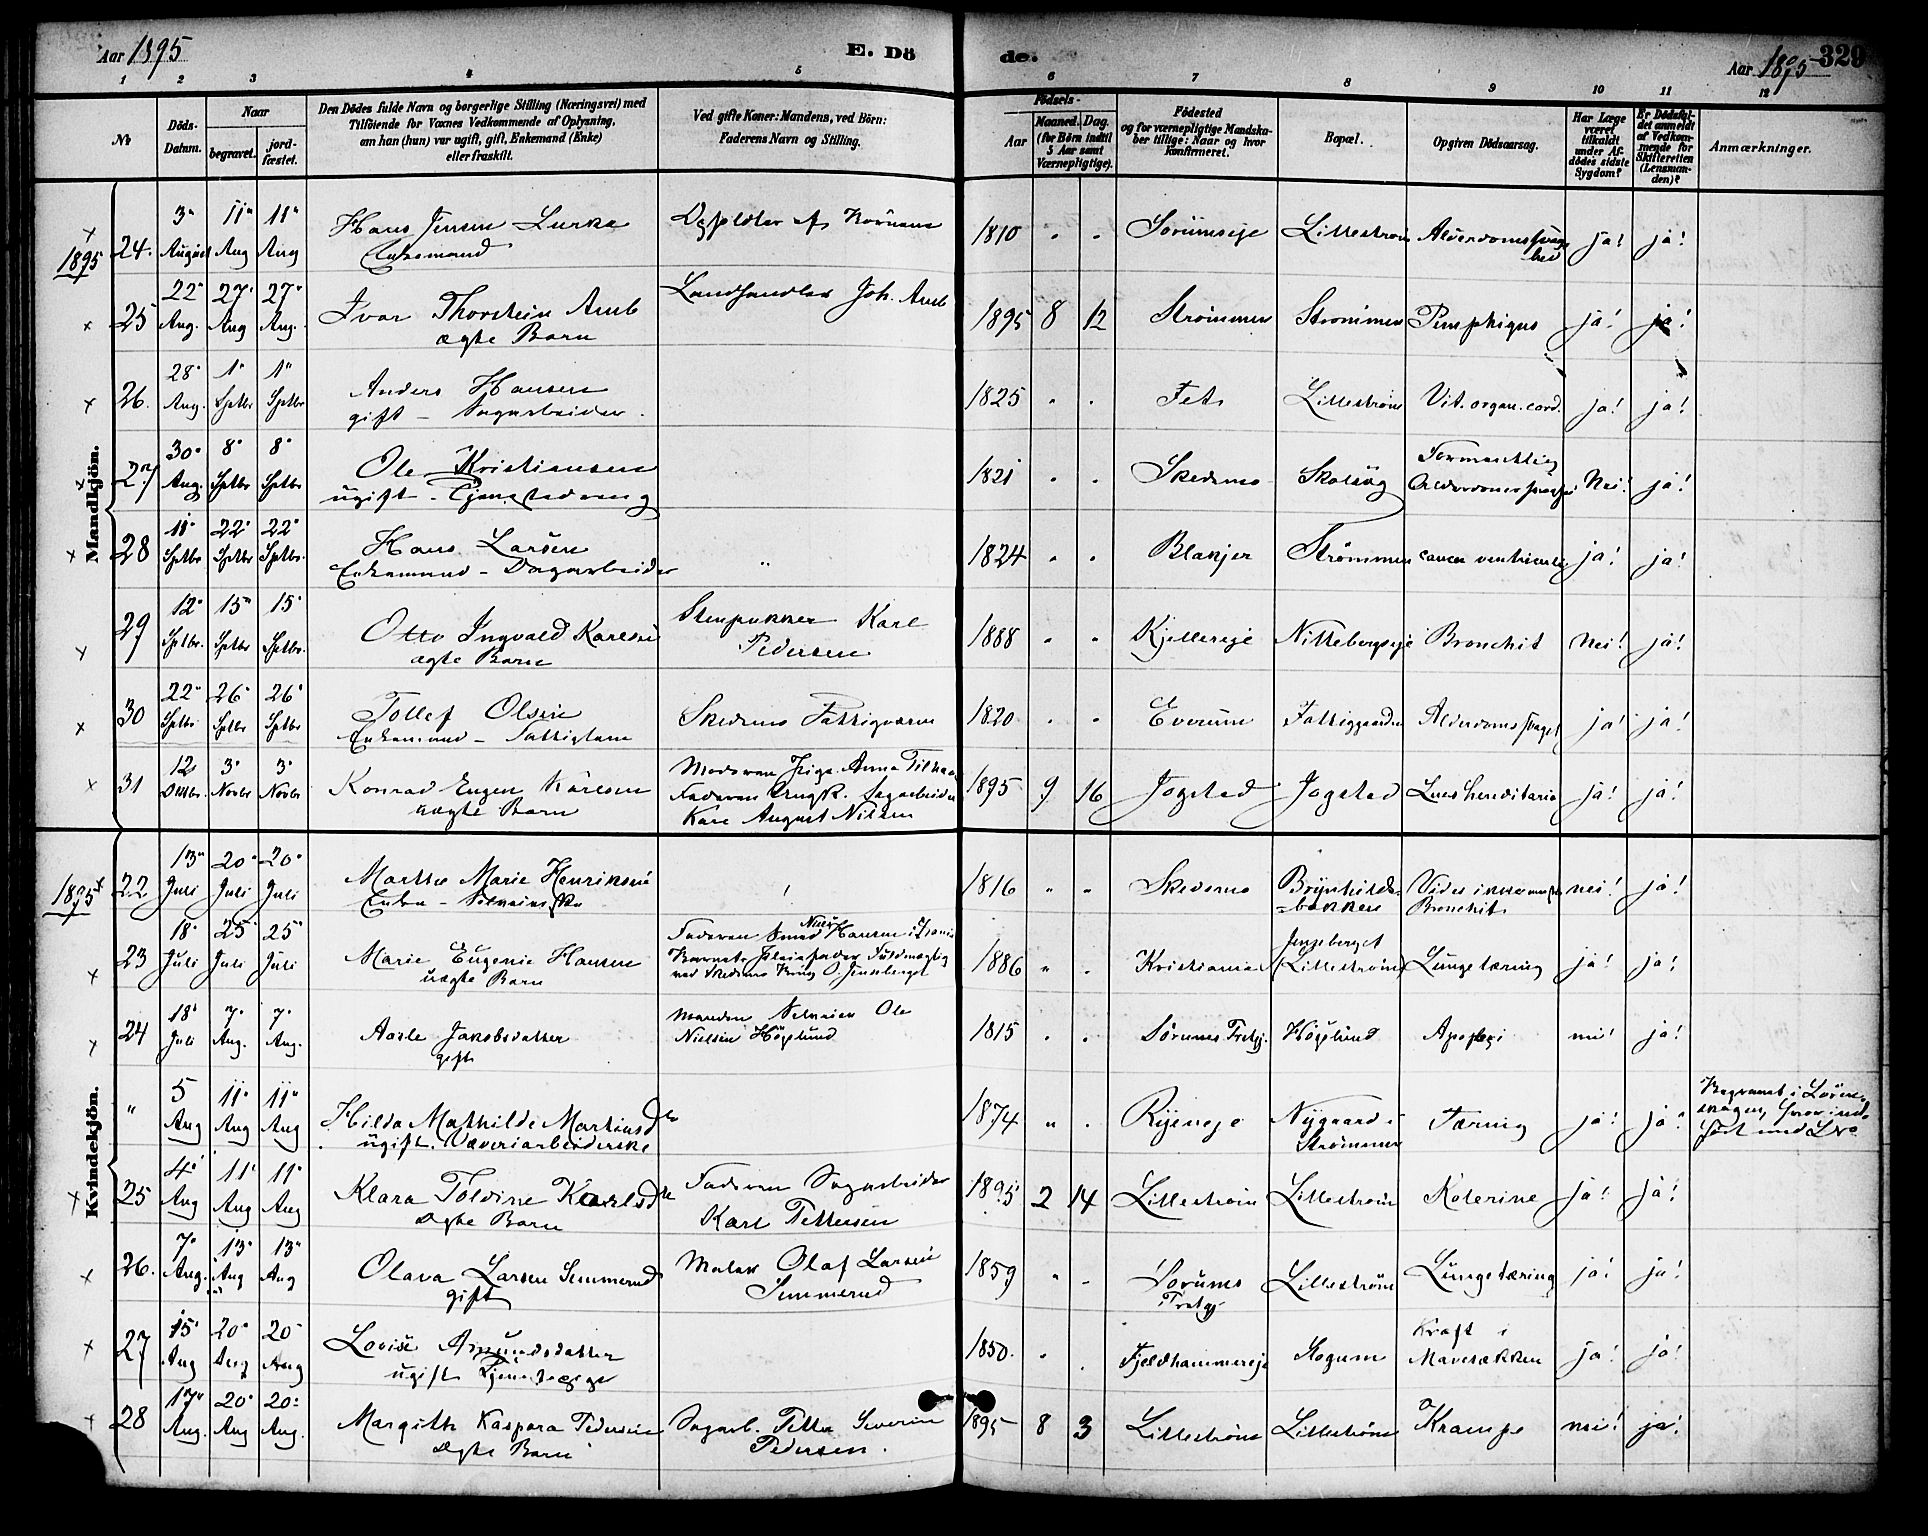 Aar 1895
E. Dö
de.
Aar 1895
329
1 2 3 4 5 6 7 8 9 10 11 12
No
Döds-Datum.
Naar
begravet.
jord-fæstet.
Den Dödes fulde Navn og borgerlige Stilling (Næringsvei) med
Tilföiende for Voxnes Vedkommende af Oplysning,
om han (hun) var ugift, gift, Enkemand (Enke)
eller fraskilt.
Ved gifte Koner: Mandens, ved Börn:
Faderens Navn og Stilling.
Födsels-
Aar
Maaned. Dag.
(for Börn indtil
5 Aar samt
Værnepligtige).
Födested
og for værnepligtige Mandska-
ber tillige: Naar og hvor
konfirmeret.
Bopæl.
Opgiven Dödsaarsag.
Har Læge
været
tilkaldt
under Af-
dödes sidste
Sygdom?
Er Dödsfal-
det anmeldt
af Vedkom-
mende for
Skifteretten
(Lensman-
den)?
Anmærkninger.
Mandkjön.
1895
24. 3 August 11 Aug 11 Aug Hans Jensen Enkemand 1810 Sörumseje Lilleström Alderdomssvaghed ja! ja!
25 22 Aug. 27 Aug 27 Aug. Ivar Thorstein ægte Barn Landhandler Joh. 1895 8 12 Strömmen Strömmen Pemphigus ja! ja!
26. 28 Aug. 1 Septbr 1 Septbr Anders Hansen
gift – Sagarbeider. 1825 Fet Lilleström Vit. organ. cord. ja! ja!
27 30 Aug. 8 Septbr 8 Septbr Ole Kristiansen
ugift – 1821 Skedsmo Nei! ja!
28 11 Septbr 22 Septbr 22 Septbr. Hans Larsen
Enkemand – Dagarbeider 1824 Blakjer Strömmen cancer ventriculi ja! ja!
29 12 Septbr. 15 Septbr 15 Septbr. Otto Ingvald Karlsen
ægte Barn Stenpukker Karl
Pedersen 1888 Kjellereje Nittebergseje Bronchit Nei! ja!
30 22 Septbr 26 Septbr 26 Septbr Tollef Olsen
Enkemand – Fattiglem Skedsmo Fattigvæsen 1820 Fattiggaarden ja! ja!
31 12 Oktbr. 3 Novbr 3 Novbr Konrad Eugen Karlsen
uægte Barn Moderen Pige Anna
Faderen Ungk. Sagarbeider
Karl August Nilsen 1895 9 16 Jogstad Jogstad Lues hereditaria ja! ja!
Kvindekjön.
1895
22 13 Juli 20 Juli 20 Juli Marthe Marie Henriksen
Enke – 1816 Skedsmo Brynhilds-
bakken Bronchit nei! ja!
23 18 Juli 25 Juli 25 Juli Marie Eugenie Hansen
uægte Barn Faderen Smed Niels Hansen
Barnets Pleiefader 1886 Kristiania
(Lilleström) Lungetæring ja! ja!
24 18 Juli 7 Aug. 7 Aug. Jakobsdatter
gift Manden Ole
Nielsen Höglund 1815 Sörums Prstgj. Höglund Apoplexi nei! ja!
" 5 Aug 11 Aug 11 Aug Hilda Mathilde Martinsdtr
ugift. Væveriarbeiderske 1874 Nygaard i
Strömmen Tæring ja! ja! Begravet i Lören-
skogen, hvor ind-
fört med No
25 4 Aug 11 Aug 11 Aug Klara Tolvine Karlsdtr
Ægte Barn Faderen Sagarbeider
Karl Pettersen 1895 2 14 Lilleström Lilleström Kolerine ja! ja!
26. 7 Aug. 13 Aug 13 Aug Olava Larsen
gift Maler Olaf Larsen 1859 Sörums
Prstgj. Lilleström Lungetæring ja! ja!
27 15 Aug 20 Aug 20 Aug Lovise Amundsdatter
ugift Tjenestepige 1850. Fjeldhammereje Kræft i
Mavesækken ja! ja!
28 17 Aug. 20 Aug 20 Aug. Margith Kaspara Pedersen
Ægte Barn Sagarb. Petter Severin
Pedersen. 1895 8 3 Lilleström Lilleström Krampe nei! ja!